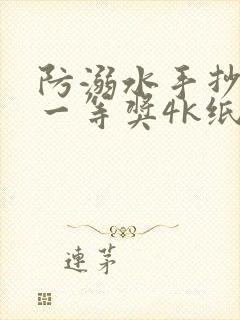 防溺水手抄
一等奖4k纸
连茅